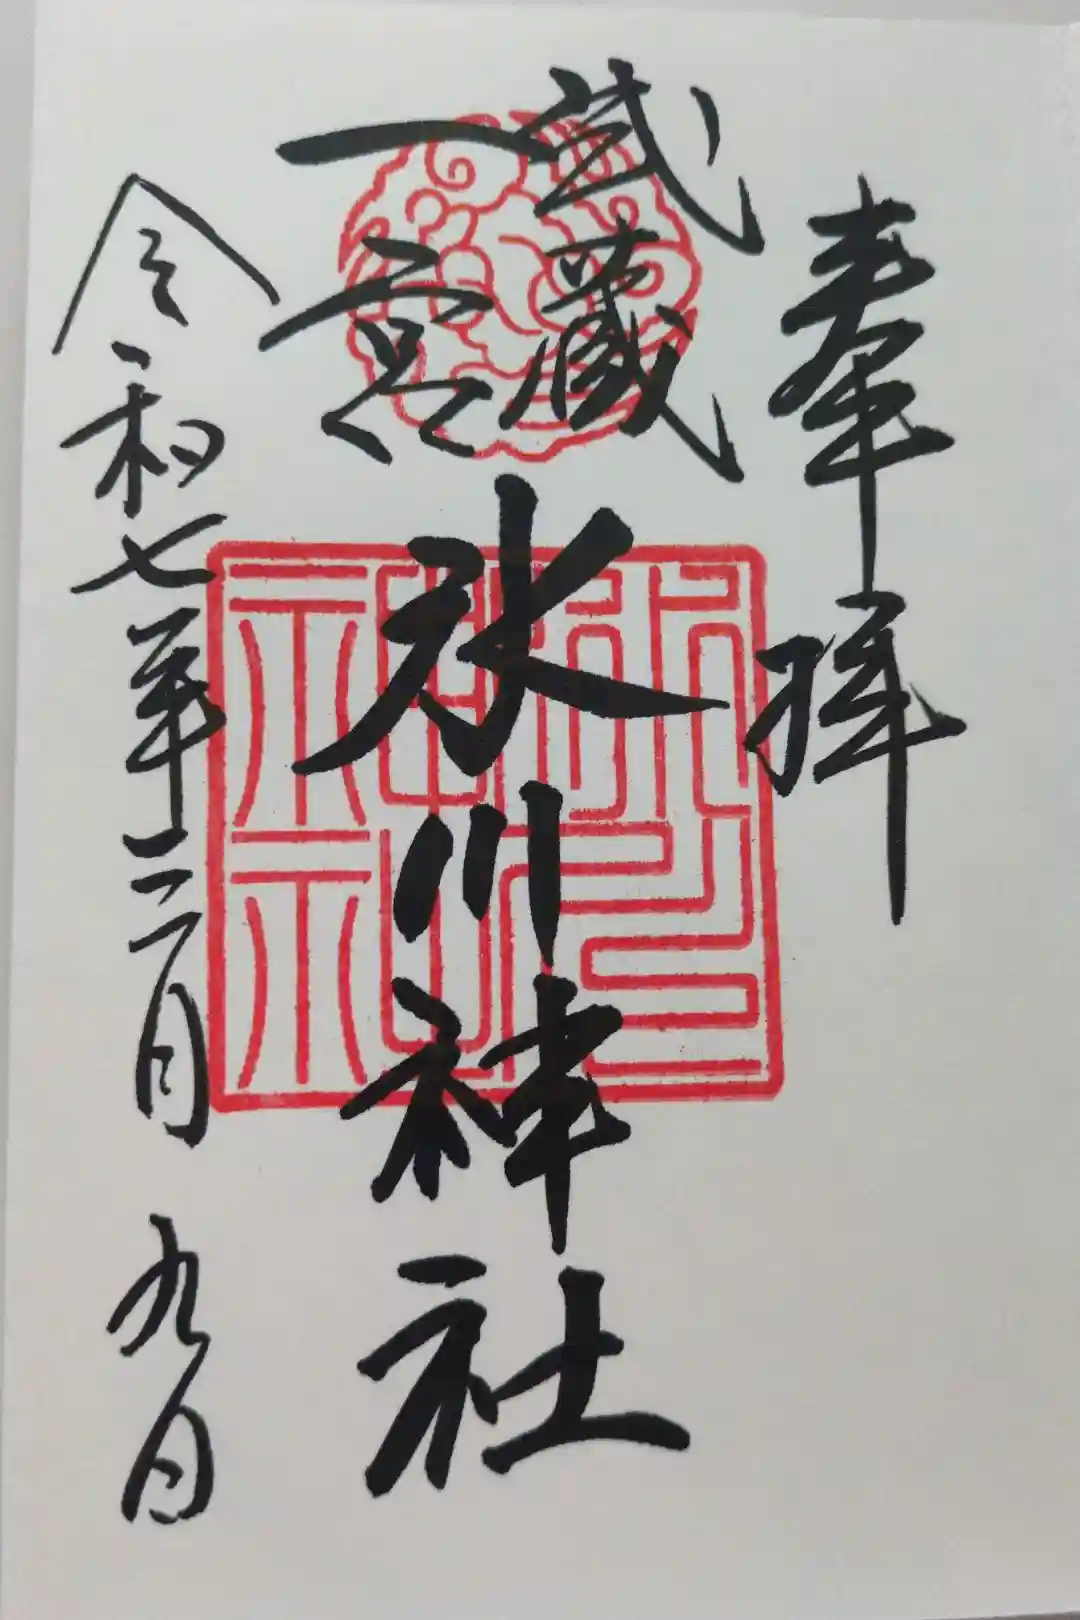 奉拝
武蔵
一宮
氷川神社
令和七年三月九日